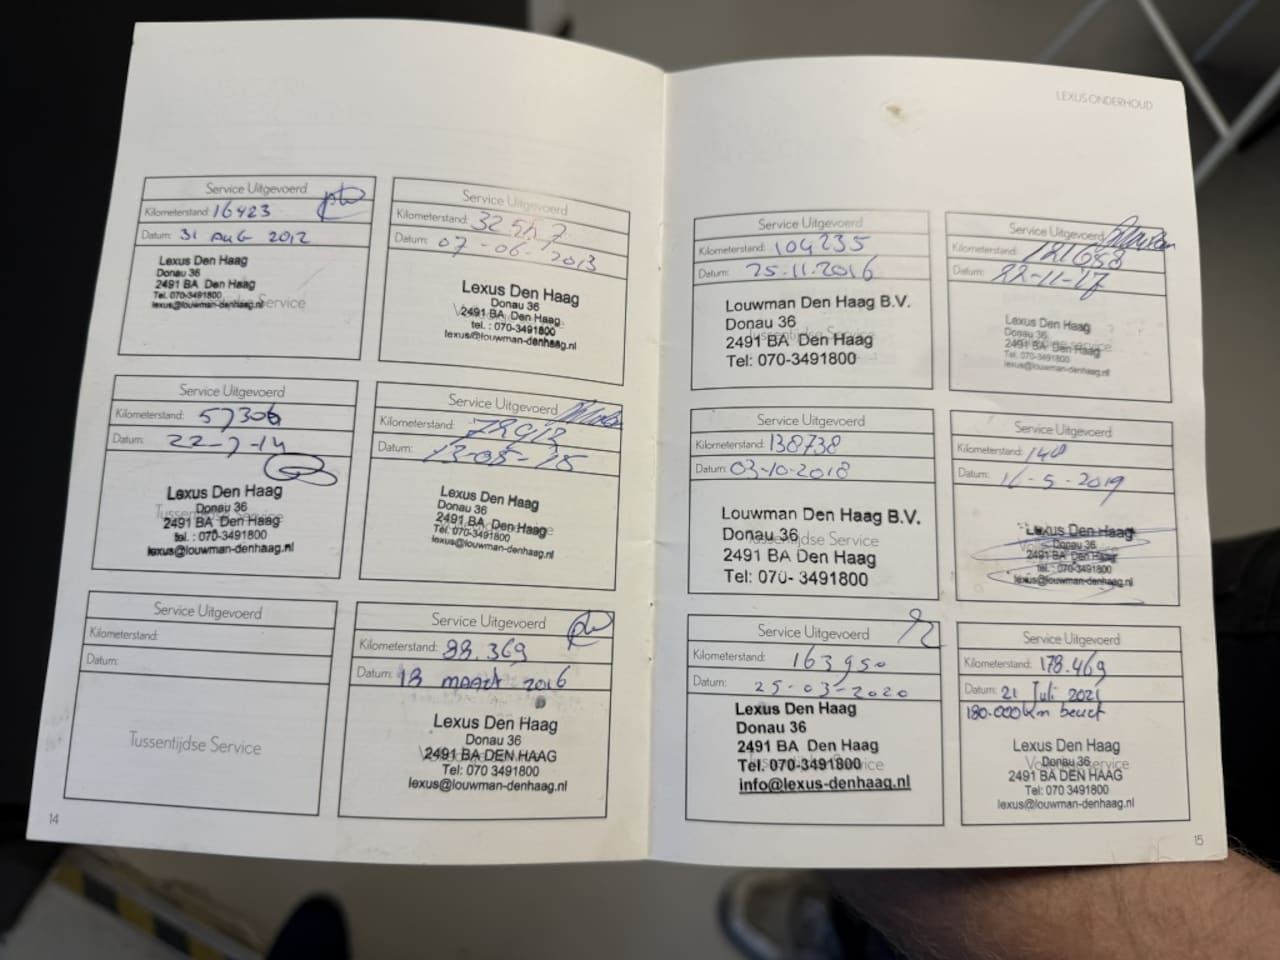 Service Uitgevoerd
Kilometerstand: 16423
Datum: 31 AUG 2012
Lexus Den Haag
Donau 36
2491 BA Den Haag
Tel. 070-3491800
lexus@louwman-denhaag.nl
Service Uitgevoerd
Kilometerstand:
Datum: 07-06-2013
Lexus Den Haag
Donau 36
2491 BA Den Haag
tel. : 070-3491800
lexus@louwman-denhaag.nl
Service Uitgevoerd
Kilometerstand: 57306
Datum: 22-7-14
Lexus Den Haag
Donau 36
Tussentijdse Service
2491 BA Den Haag
tel. : 070-3491800
lexus@louwman-denhaag.nl
Service Uitgevoerd
Kilometerstand:
Datum: 13-05-15
Lexus Den Haag
Donau 36
2491 BA Den Haag
Tel. 070-3491800
lexus@louwman-denhaag.nl
Service Uitgevoerd
Kilometerstand:
Datum:
Tussentijdse Service
Service Uitgevoerd
Kilometerstand: 88.369
Datum: 18 maart 2016
Lexus Den Haag
Donau 36
2491 BA DEN HAAG
Tel: 070 3491800
lexus@louwman-denhaag.nl
14
LEXUS ONDERHOUD
Service Uitgevoerd
Kilometerstand: 104235
Datum: 25.11.2016
Louwman Den Haag B.V.
Donau 36
Tussentijdse Service
2491 BA Den Haag
Tel: 070-3491800
Service Uitgevoerd
Kilometerstand: 121688
Datum: 22-11-17
Lexus Den Haag
Donau 36
2491 BA Den Haag
Tel. 070-3491800
lexus@louwman-denhaag.nl
Service Uitgevoerd
Kilometerstand: 138738
Datum: 03-10-2018
Louwman Den Haag B.V.
Donau 36
Tussentijdse Service
2491 BA Den Haag
Tel: 070- 3491800
Service Uitgevoerd
Kilometerstand:
Datum: 16-5-2019
Lexus Den Haag
Donau 36
2491 BA Den Haag
tel. : 070-3491800
lexus@louwman-denhaag.nl
Service Uitgevoerd
Kilometerstand: 163950
Datum: 25-03-2020
Lexus Den Haag
Donau 36
2491 BA Den Haag
Tussentijdse Service
Tel. 070-3491800
info@lexus-denhaag.nl
Service Uitgevoerd
Kilometerstand: 178.469
Datum: 21 Juli 2021
180.000km beurt
Lexus Den Haag
Donau 36
2491 BA DEN HAAG
Tel: 070 3491800
lexus@louwman-denhaag.nl
15